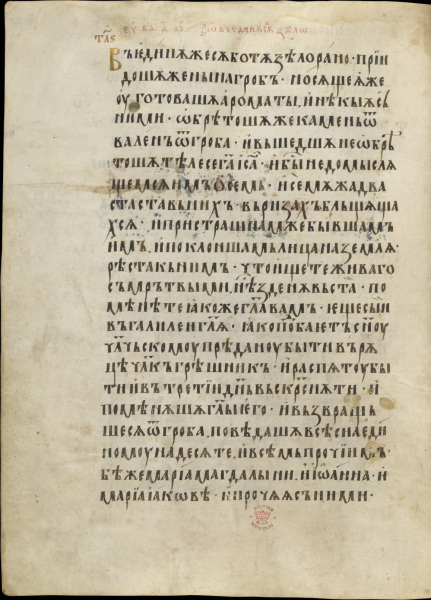 Въедин꙽ѧжесѫботѫꙃѣлорано· прїи
дошѧженынагробъ· носѧщеѧже
оуготовашѧароматы. инѣкыѧсъ
ними· ѡбрѣтошѧжекаменьѿ
валенъѿгроба· ившедшѧнеѡбрѣ
тошѧтѣлесегаі҃са· ибы недомыслѧ
щемсѧимъѡсемь· исемѫжадва
стаставьнихъ· въризахъблъщѧща
хсѧ· ипристрашнамжебывшамъ
имъ. ипоклоншамълицаназемлѧ·
рѣстакънимъ· чтоищетеживаго
съмрътвыми. нѣзденѫвъста· по
мѣнѣтеꙗкожегл҃авамъ· ещесыи
въгалилеигл҃ѧ· ꙗкоподобаетьсн҃оу
чл҃чьскомоупрѣданоубытивърѫ
цечл҃къгрѣшникъ· ираспѧтоубы
тиивътретїидн҃ьвъскрс҃нѫти· и
помѣнѫшѧгл҃ыего· ивъзвращь
шесѧѿгроба. повѣдашѧвсѣсиаеди
номоунадесѧте. ивсѣмьпрочїимъ·
бѣжемарїамагдалыни. иїѡанна· и
марїаꙗковѣ· ипрочѧѧсъними·